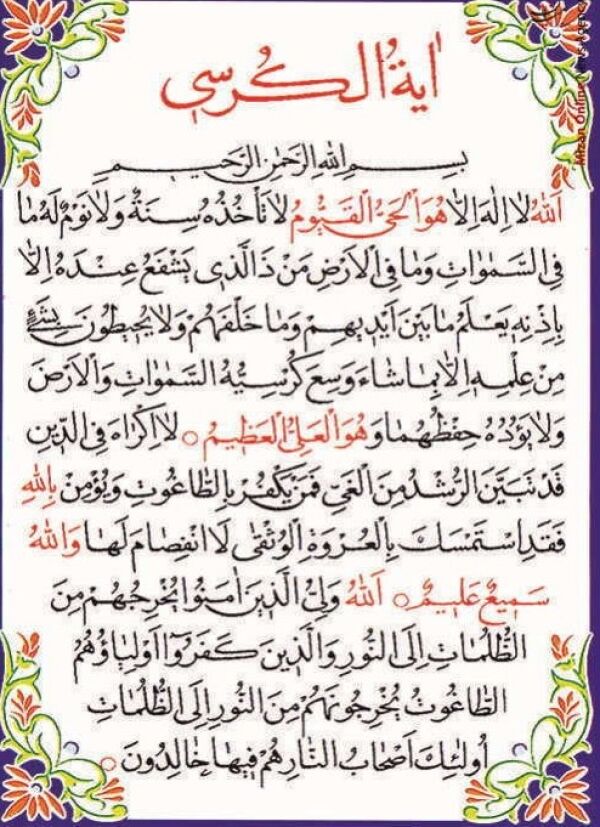 اٰيةُ الكُرسي
بِسمِ اللهِ الرَّحمٰنِ الرَّحيمِ
اَللهُ لا اِلٰهَ اِلاّ هُوَ الْحَىُّ الْقَيُّومُ لا تَأْخُذُهُ سِنَةٌ وَلا نَوْمٌ لَهُ ما
فِى السَّمٰواتِ وَما فِى الْاَرْضِ مَنْ ذَا الَّذى يَشْفَعُ عِنْدَهُ اِلّا
بِاِذْنِهِ يَعْلَمُ ما بَيْنَ اَيْديهِمْ وَما خَلْفَهُمْ وَلا يُحيطُونَ بِشَىْءٍ
مِنْ عِلْمِهِ اِلّا بِما شاءَ وَسِعَ كُرْسِيُّهُ السَّمٰواتِ وَالْاَرْضَ
وَلا يَؤُدُهُ حِفْظُهُما وَهُوَ الْعَلِىُّ الْعَظيمُ ○ لا اِكْراهَ فِى الدّينِ
قَدْ تَبَيَّنَ الرُّشْدُ مِنَ الْغَىِّ فَمَنْ يَكْفُرْ بِالطّاغُوتِ وَيُؤْمِنْ بِاللهِ
فَقَدِ اسْتَمْسَكَ بِالْعُرْوَةِ الْوُثْقٰى لَا انْفِصامَ لَها وَاللهُ
سَميعٌ عَليمٌ ○ اَللهُ وَلِىُّ الَّذينَ اٰمَنُوا يُخْرِجُهُمْ مِنَ
الظُّلُماتِ اِلَى النُّورِ وَالَّذينَ كَفَرُوا اَوْلِياؤُهُمُ
الطّاغُوتُ يُخْرِجُونَهُمْ مِنَ النُّورِ اِلَى الظُّلُماتِ
اُولٰئِكَ اَصْحابُ النّارِ هُمْ فيها خٰالِدُونَ ○
Mizan Online